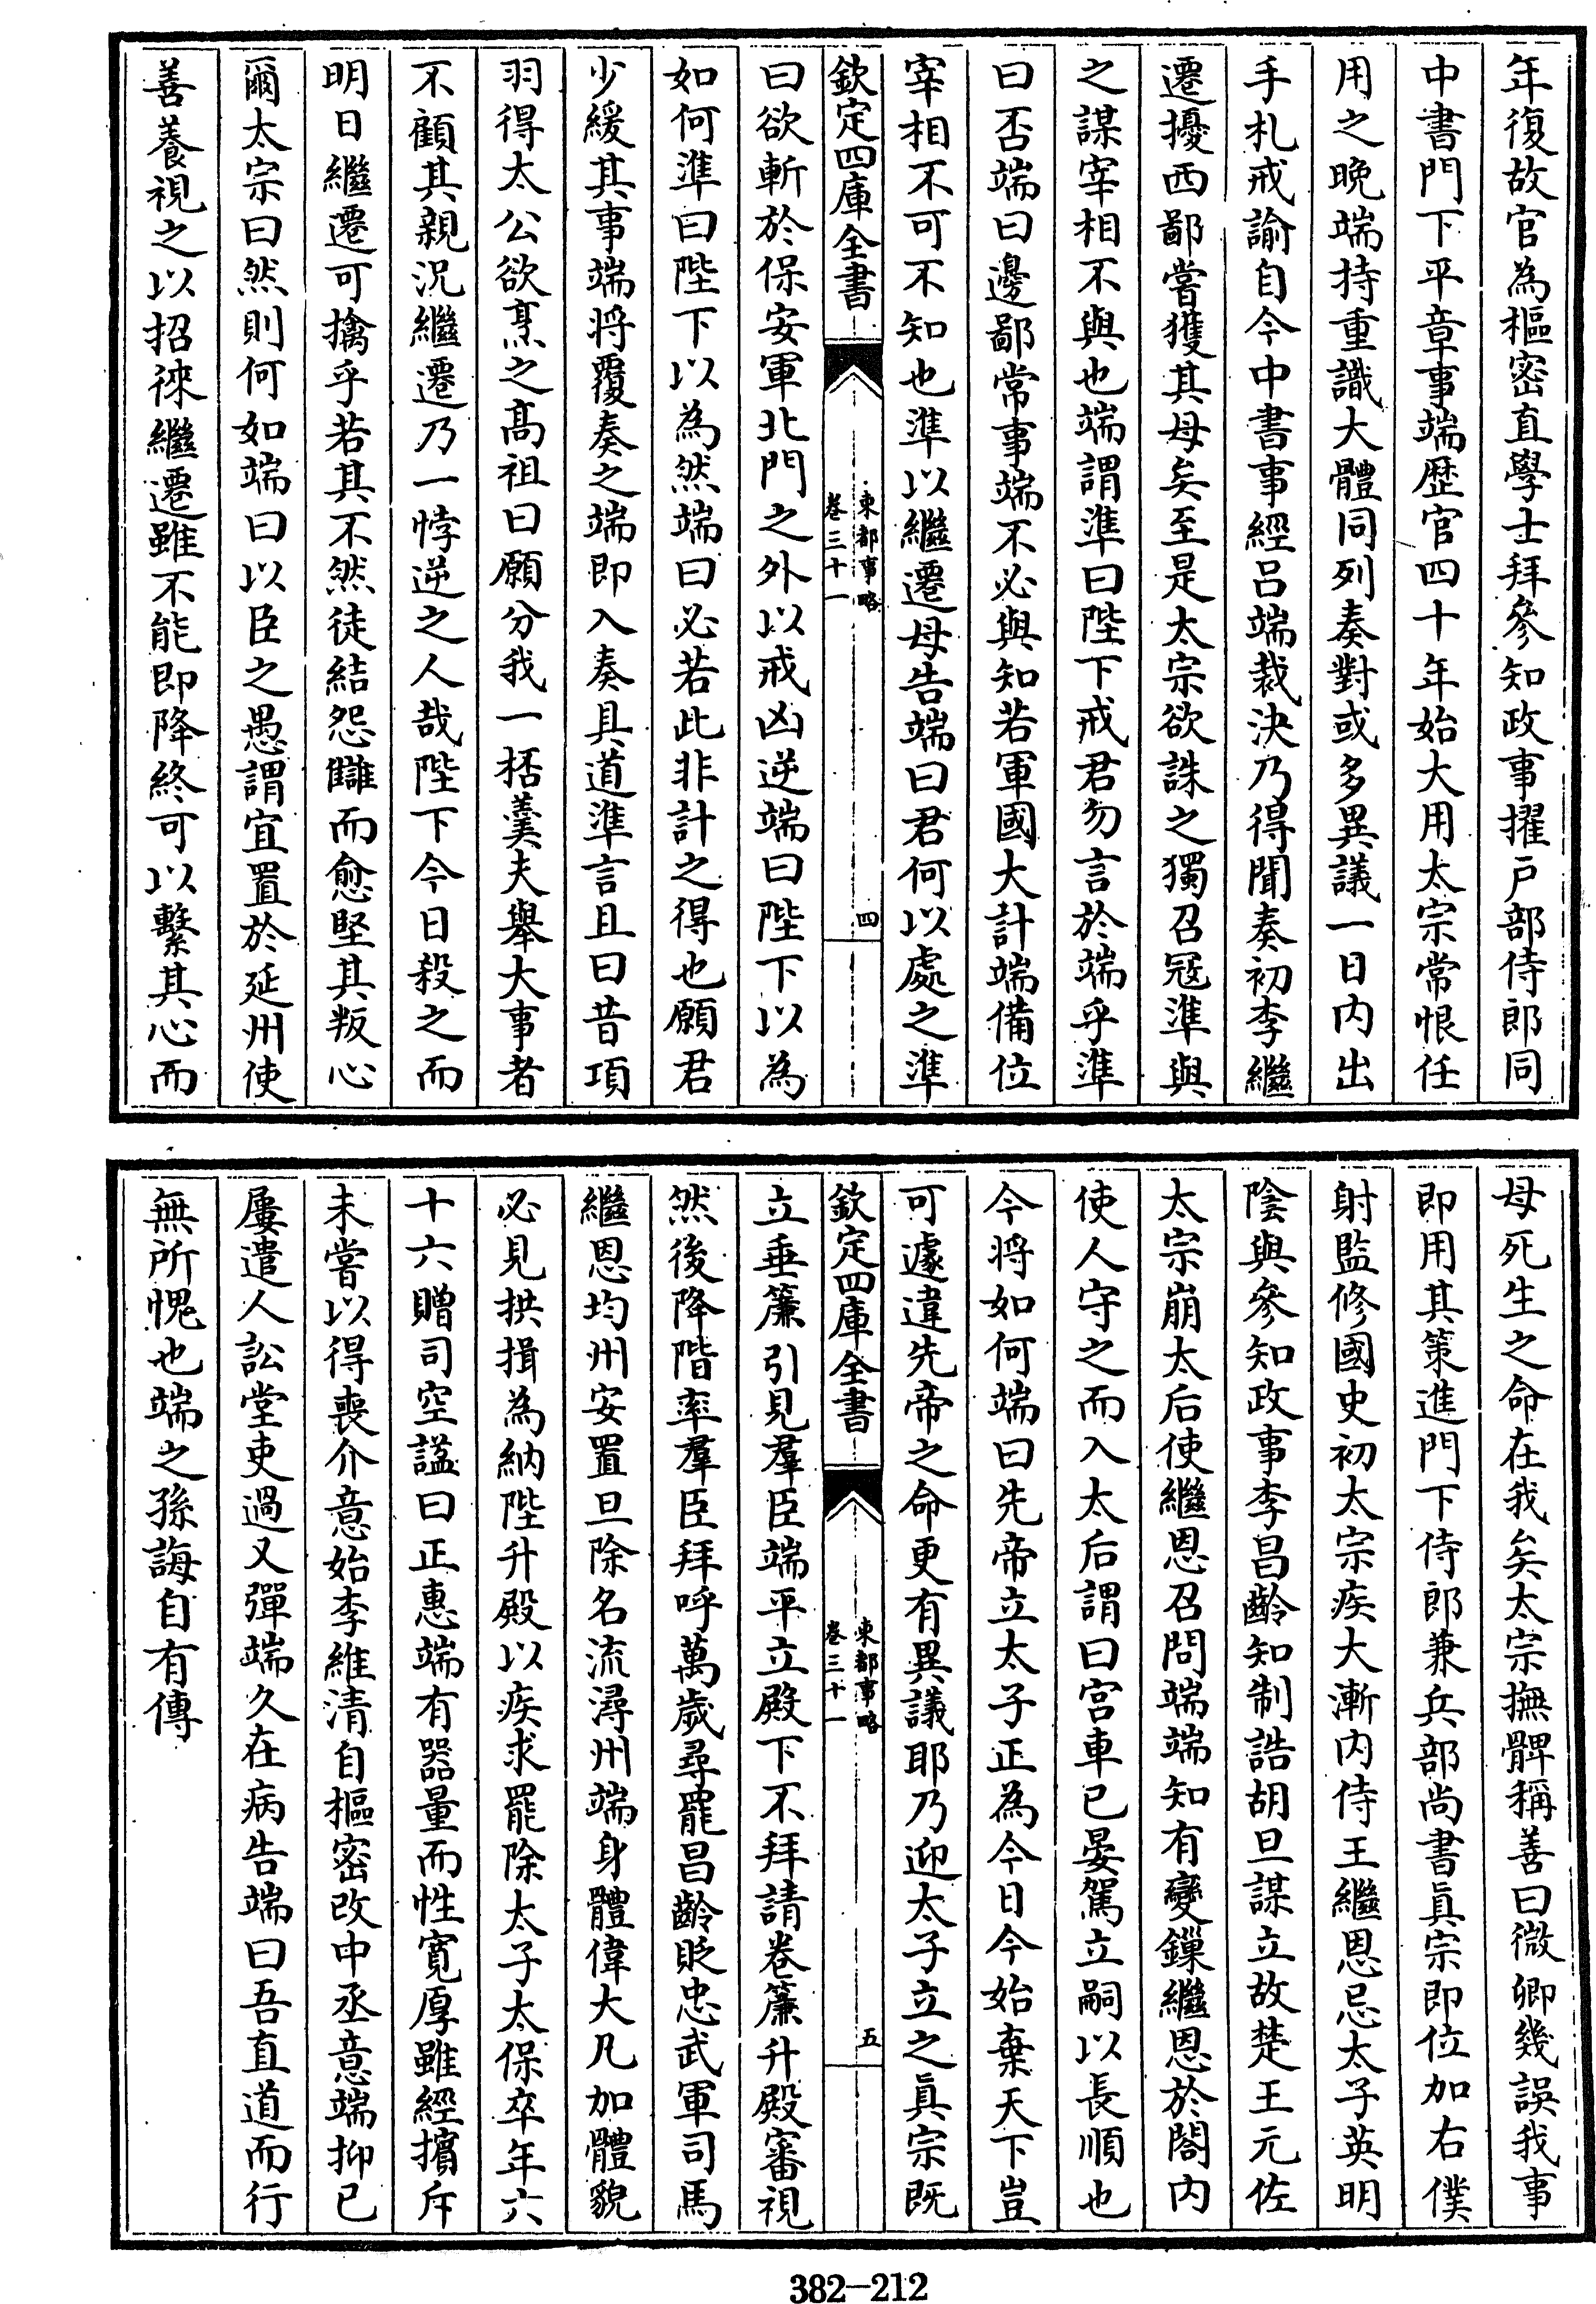 年復故官為樞密直學士拜參知政事擢戶部侍郎同
中書門下平章事端歷官四十年始大用太宗常恨任
用之晚端持重識大體同列奏對或多異議一日内出
手札戒諭自今中書事經呂端裁決乃得聞奏初李繼
遷擾西鄙嘗獲其母矣至是太宗欲誅之獨召冦準與
之謀宰相不與也端謂準曰陛下戒君勿言於端乎準
曰否端曰邊鄙常事端不必與知若軍國大計端備位
宰相不可不知也準以繼遷母告端曰君何以處之準
欽定四庫全書
東都事略
卷三十一
四
曰欲斬於保安軍北門之外以戒凶逆端曰陛下以為
如何準曰陛下以為然端曰必若此非計之得也願君
少緩其事端將覆奏之端即入奏具道準言且曰昔項
羽得太公欲烹之高祖曰願分我一桮羹夫舉大事者
不顧其親況繼遷乃一悖逆之人哉陛下今日殺之而
明日繼遷可擒乎若其不然徒結怨讎而愈堅其叛心
爾太宗曰然則何如端曰以臣之愚謂宜置於延州使
善養視之以招徠繼遷雖不能即降終可以繫其心而
母死生之命在我矣太宗撫髀稱善曰微卿幾誤我事
即用其策進門下侍郎兼兵部尚書眞宗即位加右僕
射監修國史初太宗疾大漸内侍王繼恩忌太子英明
陰與參知政事李昌齡知制誥胡旦謀立故楚王元佐
太宗崩太后使繼恩召問端端知有變鏁繼恩於閤内
使人守之而入太后謂曰宫車已晏駕立嗣以長順也
今將如何端曰先帝立太子正為今日今始棄天下豈
可遽違先帝之命更有異議耶乃迎太子立之眞宗既
欽定四庫全書
東都事略
卷三十一
五
立垂簾引見羣臣端平立殿下不拜請卷簾升殿審視
然後降階率羣臣拜呼萬歲尋罷昌齡貶忠武軍司馬
繼恩均州安置旦除名流潯州端身體偉大凡加體貌
必見拱揖為納陛升殿以疾求罷除太子太保卒年六
十六贈司空謚曰正惠端有器量而性寬厚雖經擯斥
未嘗以得喪介意始李維清自樞密改中丞意端抑已
屢遣人訟堂吏過又彈端久在病告端曰吾直道而行
無所愧也端之孫誨自有傳
382-212